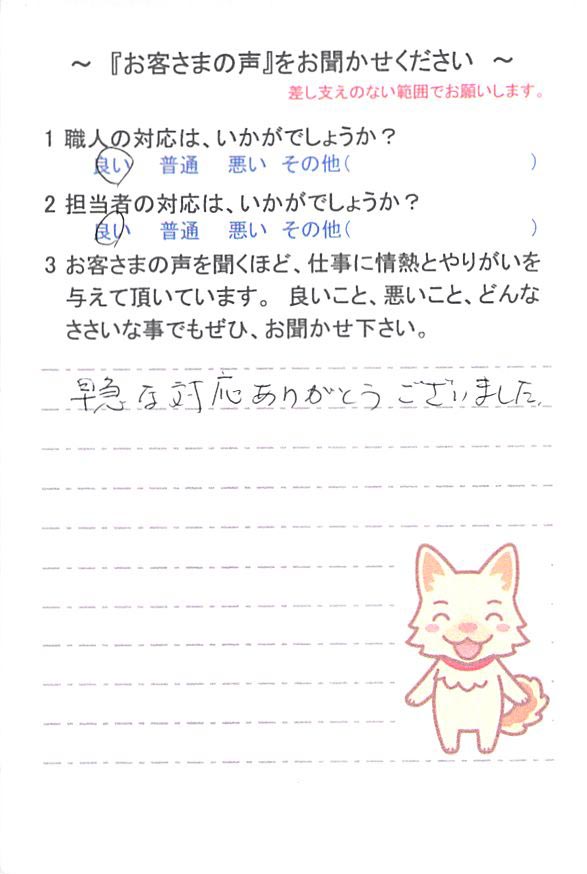 ～ 『お客さまの声』をお聞かせください ～
差し支えのない範囲でお願いします。
1 職人の対応は、いかがでしょうか？
良い 普通 悪い その他( )
2 担当者の対応は、いかがでしょうか？
良い 普通 悪い その他( )
3 お客さまの声を聞くほど、仕事に情熱とやりがいを
与えて頂いています。 良いこと、悪いこと、どんな
ささいな事でもぜひ、お聞かせ下さい。
早急な対応ありがとうございました。